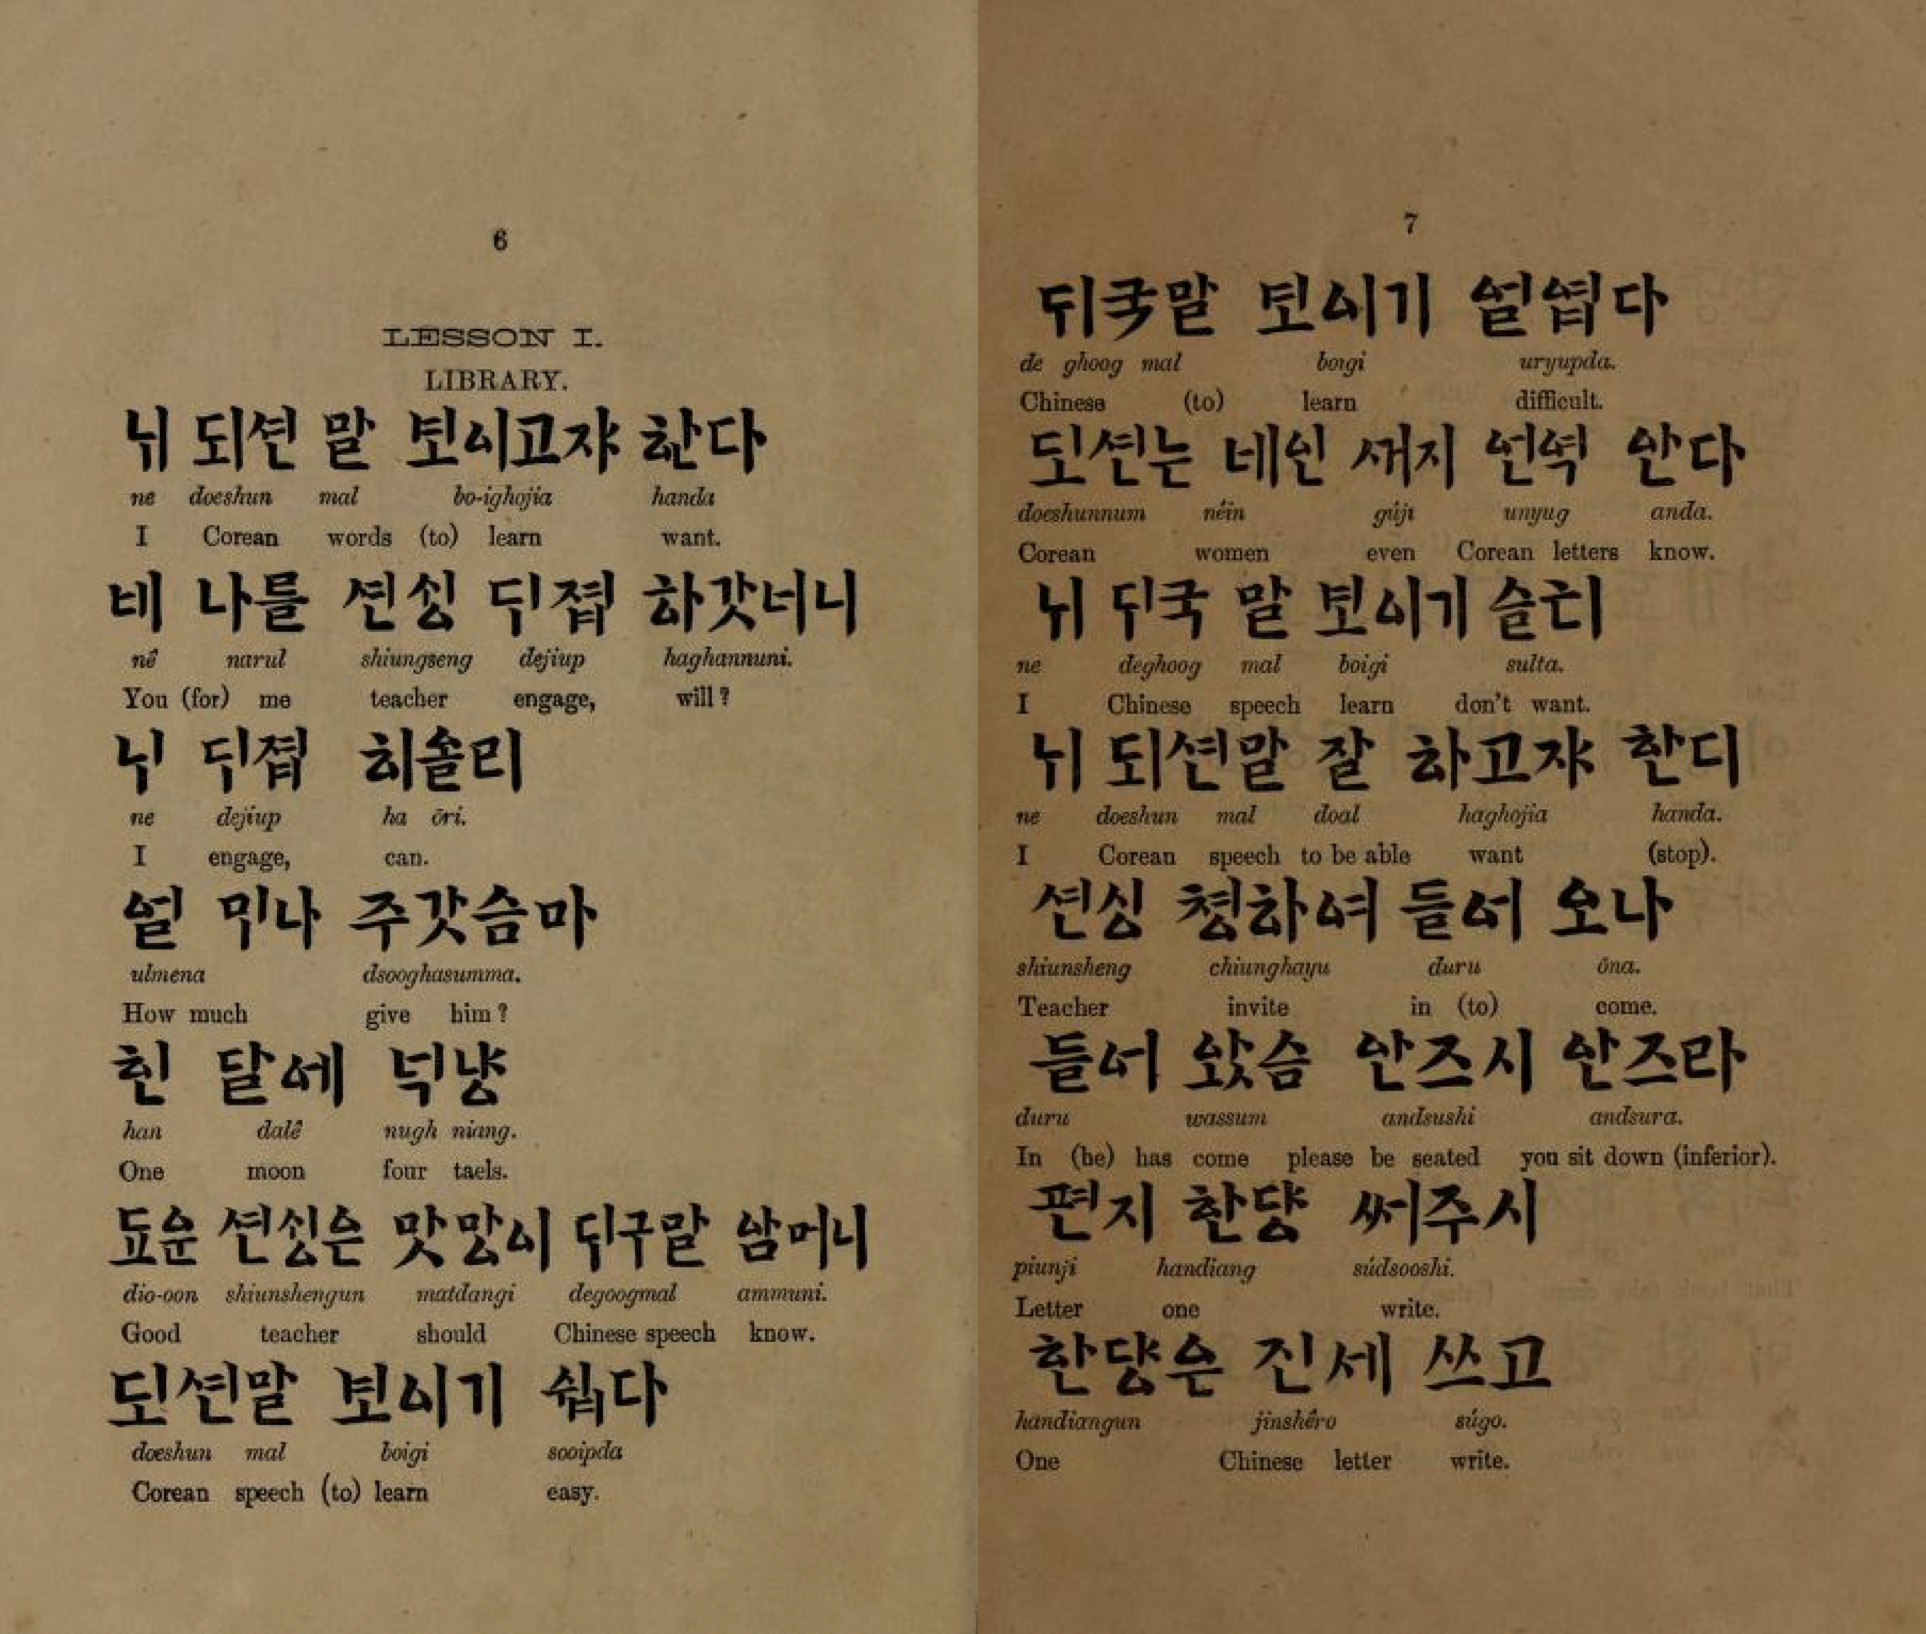 6
LESSON I.
LIBRARY.
뉘 되션 말 보이고쟈 한다
ne doeshun mal bo-ighojia handa
I Corean words (to) learn want.
네 나를 션싱 듸졉 하갓너니
nê narul shiungseng dejiup haghannuni.
You (for) me teacher engage, will?
듸졉
ne dejiup ha ōri.
I engage, can.
주갓슴마
ulmena dsooghasumma.
How much give him?
달에
han dalê nugh niang.
One moon four taels.
맛맛이 듸구말 암머니
dio-oon shiunshengun matdangi degoogmal ammuni.
Good teacher should Chinese speech know.
쉽다
doeshun mal boigi sooipda
Corean speech (to) learn easy.
7
de ghoog mal boigi uryupda.
Chinese (to) learn difficult.
안다
doeshunnum néin gúji unyug anda.
Corean women even Corean letters know.
말
ne deghoog mal boigi sulta.
I Chinese speech learn don't want.
되션말 잘 하고쟈 한디
ne doeshun mal doal haghojia handa.
I Corean speech to be able want (stop).
션싱 쳥하여 들어 오나
shiunsheng chiunghayu duru ōna.
Teacher invite in (to) come.
들어 왔슴 안즈시 안즈라
duru wassum andsushi andsura.
In (he) has come please be seated you sit down (inferior).
편지 한댱 써주시
piunji handiang súdsooshi.
Letter one write.
한댱은 진세 쓰고
handiangun jinshêro súgo.
One Chinese letter write.